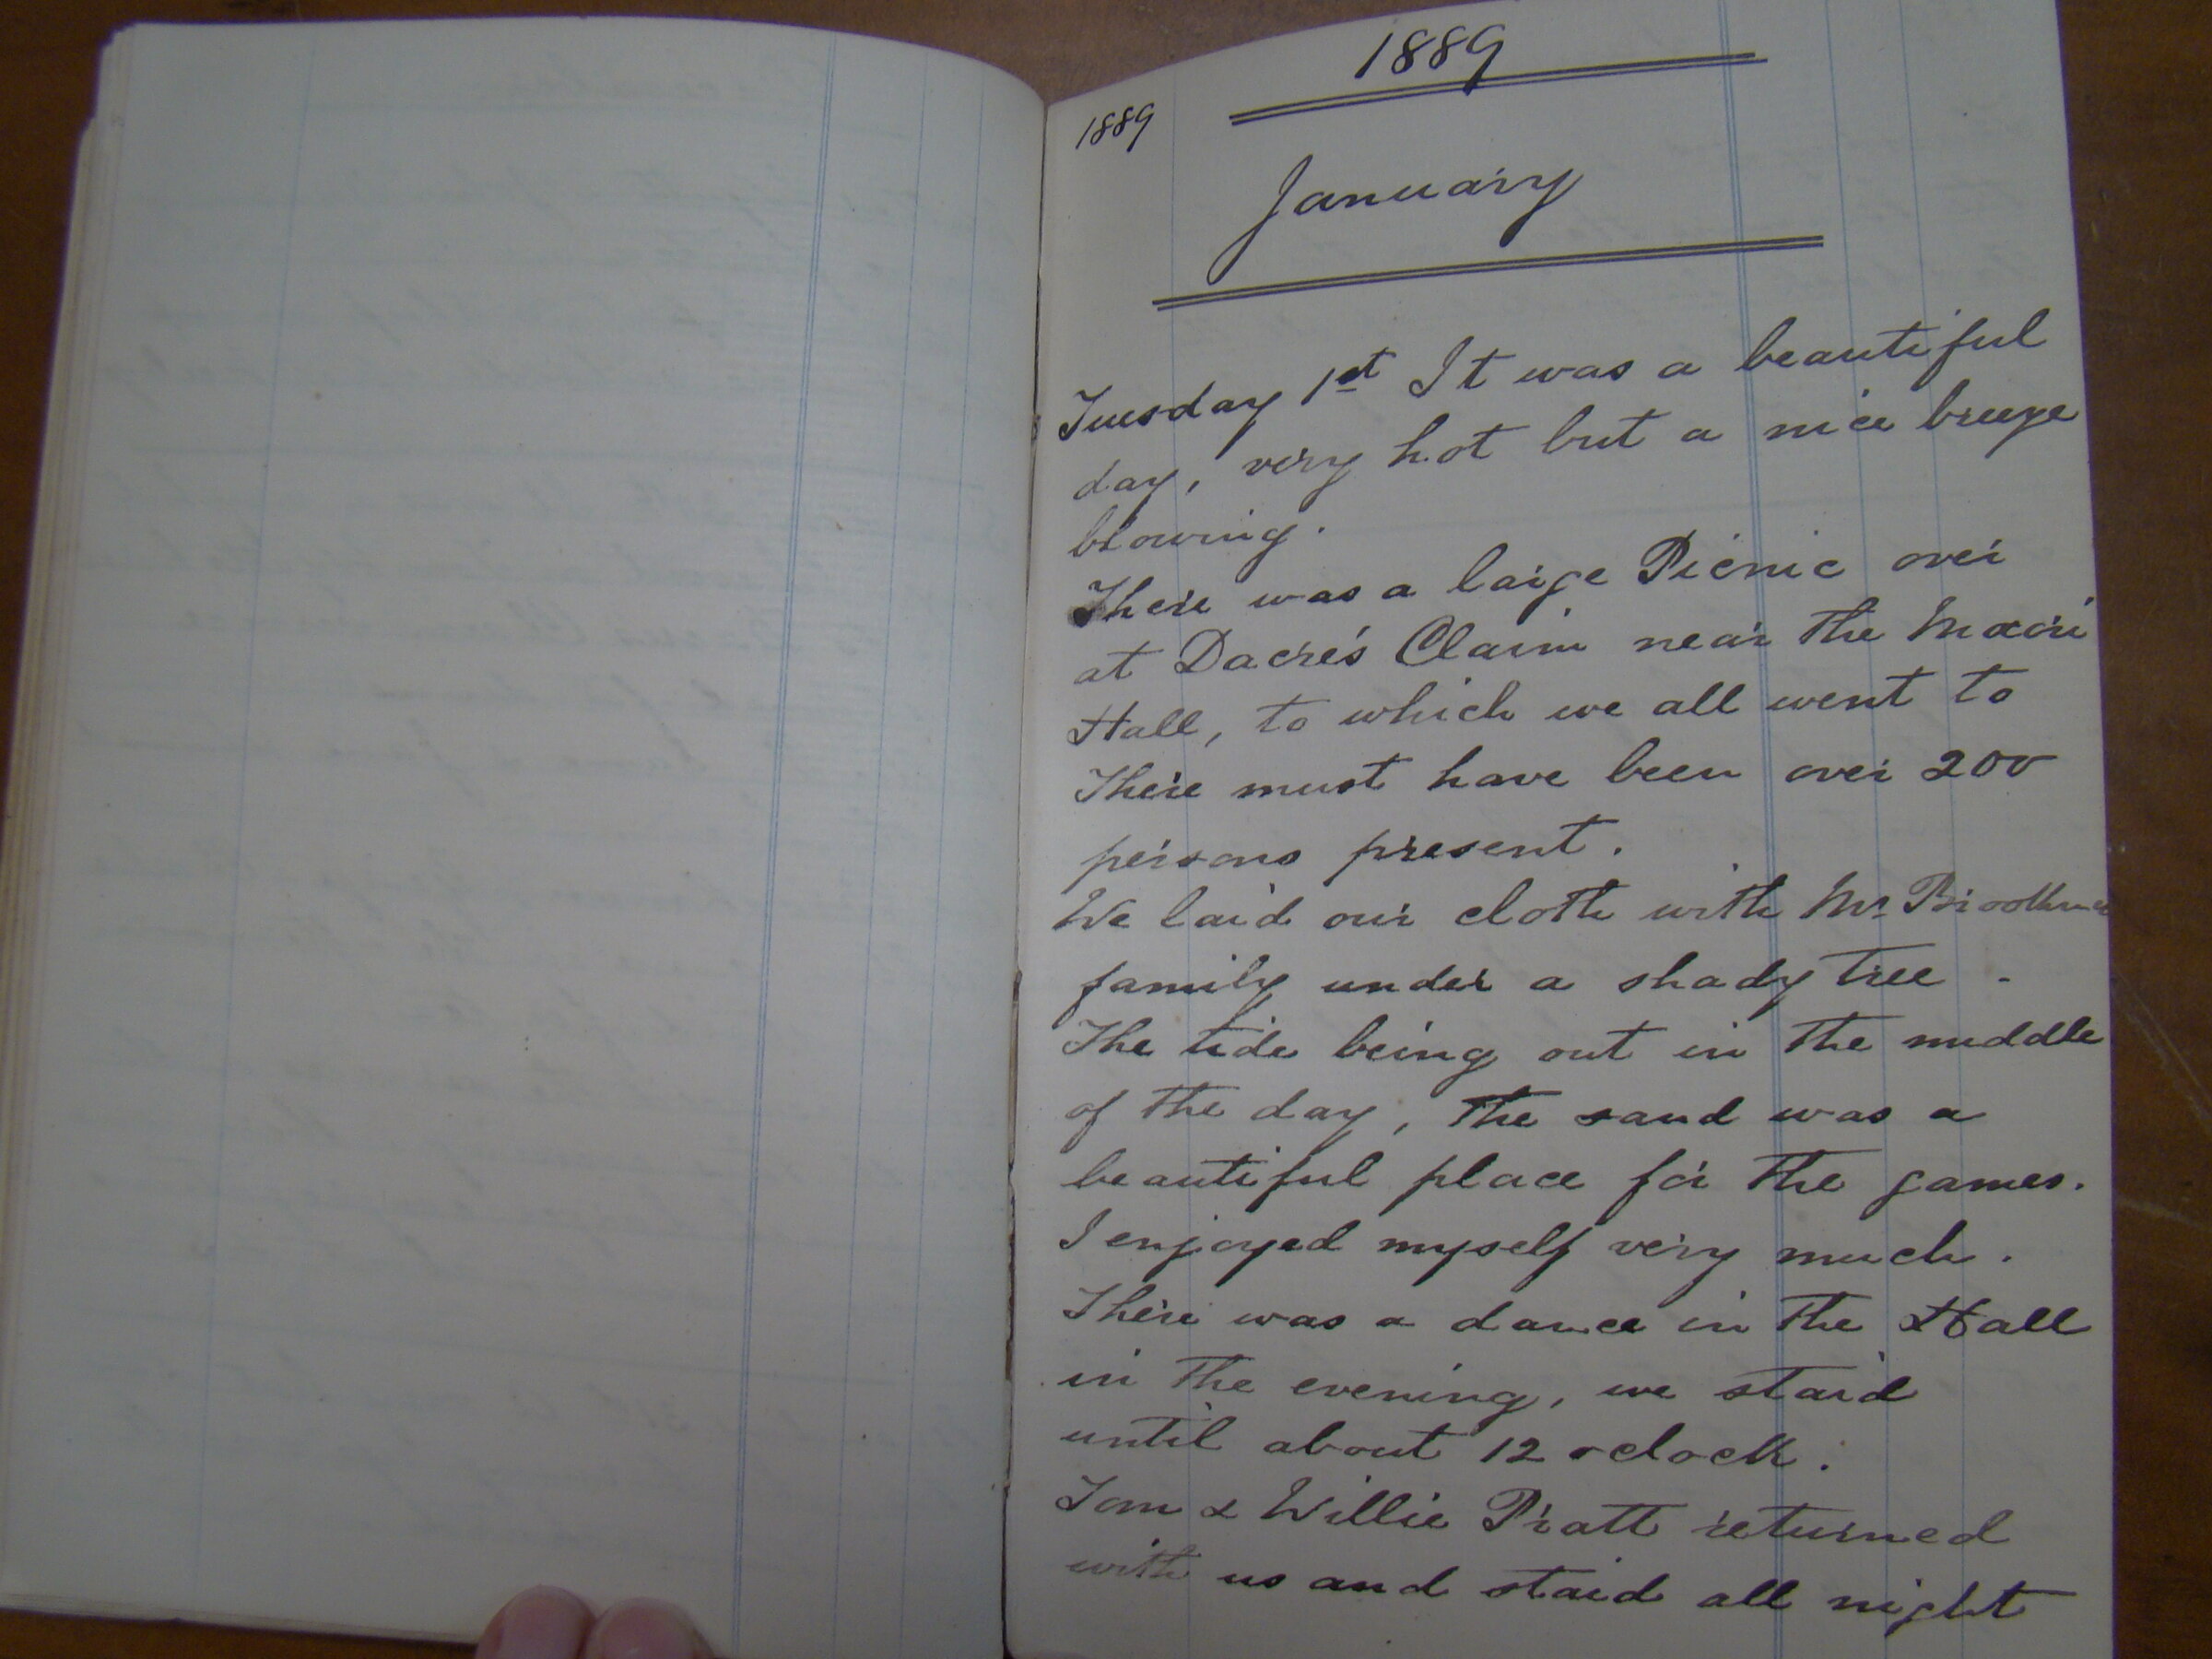 1889
1889
January
Tuesday 1st It was a beautiful
day, very hot but a nice breeze
blowing.
There was a large Picnic over
at Dacre's Claim near the Maori
Hall, to which we all went to
There must have been over 200
persons present.
We laid our cloth with Mr
family under a shady tree.
The tide being out in the middle
of the day, the sand was a
beautiful place for the games.
I enjoyed myself very much.
There was a dance in the Hall
in the evening, we staid
until about 12 oclock.
Tom & Willie Pratt returned
with us and staid all night